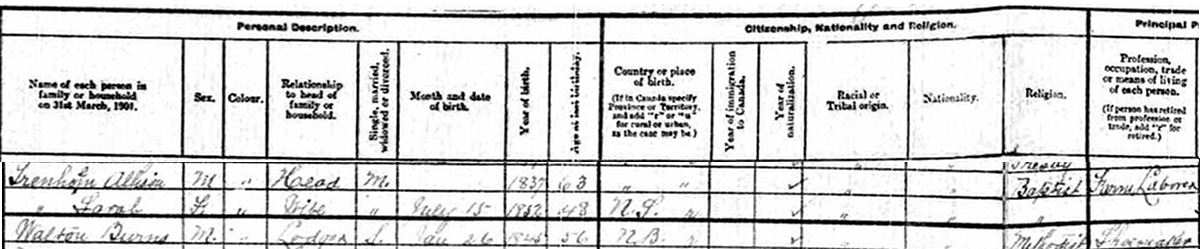 Personal Description. Citizenship, Nationality and Religion. Principal P
Name of each person in family or household on 31st March, 1901. Sex. Colour. Relationship to head of family or household. Single, married, widowed or divorced. Month and date of birth. Year of birth. Age at last birthday. Country or place of birth. (If in Canada specify Province or Territory, and add "r" or "u" for rural or urban, as the case may be.) Year of immigration to Canada. Year of naturalization. Racial or Tribal origin. Nationality. Religion. Profession, occupation, trade or means of living of each person. (If person has retired from profession or trade, add "r" for retired.)
Trenholm Allison M " Head M. 1837 63 " " ✓ " " Baptist Farm Labore
" Sarah F " Wife " July 15 1852 48 N.S. " ✓ " " "
Walton Burns M. " Lodger S. Jan 26 1845 56 N.B. " ✓ " " Methodist